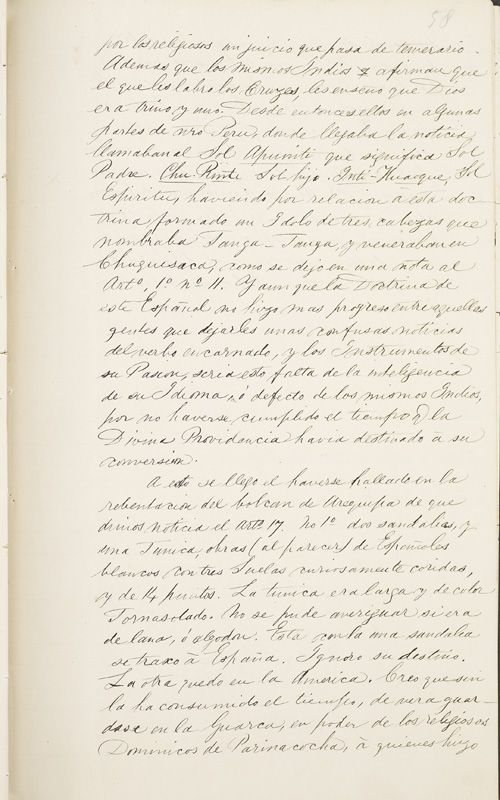 58
por los religiosos un juicio que pasa de temerario.
Ademas que los mismos Indios afirman que
el que les labro los Cruzes, les enseno que Dios
era trino, y uno. Desde entonces ellos en algunas
partes de nro Peru, donde llegaba la noticia
llamaban al Sol Apuinti que significa Sol
Padre. Churi Rinte Sol hijo. Inti-Huaoque, Sol
Espiritu, haviendo por relacion a esta doc-
trina formado un Idolo de tres cabezas que
nombraba Tanga-Tanga, y veneraban en
Chuquisaca, como se dijo en una nota al
Arto, 1o no 11. Y aunque la Doctrina de
este Español no hizo mas progreso entre aquellas
gentes que dejarles unas confusas noticias
del verbo encarnado, y los Instrumentos de
su Pasion, seria esto falta de la inteligencia
de su Idioma, ó defecto de los mismos Indios,
por no haverse cumplido el tiempo q la
Divina Providencia havia destinado a su
conversion.
A esto se llego el haverse hallado en la
rebentacion del bolcan de Arequipa de que
dimos noticia el Arto 17. no 1o dos sandalias, y
una Tunica, obras (al parecer) de Españoles
blancos con tres Suelas curiosamente cosidas,
y de 14 puntos. La tunica era larga y de color
Tornasolado. No se pude averiguar si era
de lana, ó algodon. Esta con la una sandalia
se traxo à España. Ignoro su destino.
La otra quedo en la America. Creo que sin
la ha consumido el tiempo, de vera guar-
darse en la Guarca, en poder de los religiosos
Dominicos de Parinacocha, à quienes hizo